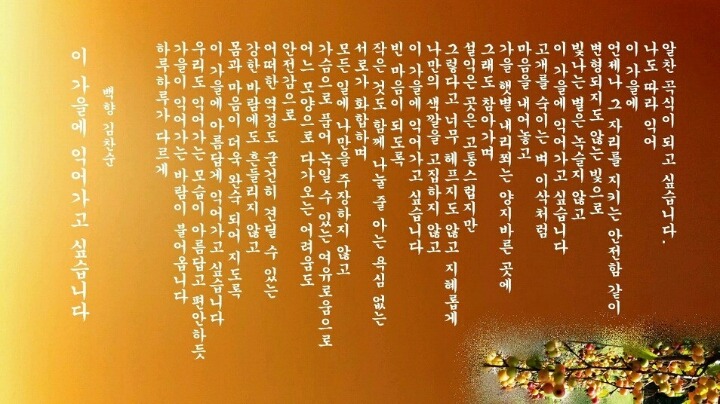 이 가을에 익어가고 싶습니다
백향 김찬순
하루하루가 다르게
가을이 익어가는 바람이 불어옵니다
우리도 익어가는 모습이 아름답고 편안하듯
이 가을에 아름답게 익어가고 싶습니다
몸과 마음이 더욱 완숙 되어 지도록
강한 바람에도 흔들리지 않고
어떠한 역경도 굳건히 견딜 수 있는
안전감으로
어느 모양으로 다가오는 어려움도
가슴으로 품어 녹일 수 있는 여유로움으로
모든 일에 나만을 주장하지 않고
서로가 화합하며
작은 것도 함께 나눌 줄 아는 욕심 없는
빈 마음이 되도록
이 가을에 익어가고 싶습니다
나만의 색깔을 고집하지 않고
그렇다고 너무 헤프지도 않고 지혜롭게
설익은 곳은 고통스럽지만
그래도 참아가며
가을 햇볕 내리쬐는 양지바른 곳에
마음을 내어놓고
고개를 숙이는 벼 이삭처럼
이 가을에 익어가고 싶습니다
빛나는 별은 녹슬지 않고
변형되지도 않는 빛으로
언제나 그 자리를 지키는 안전함 같이
이 가을에
나도 따라 익어
알찬 곡식이 되고 싶습니다.